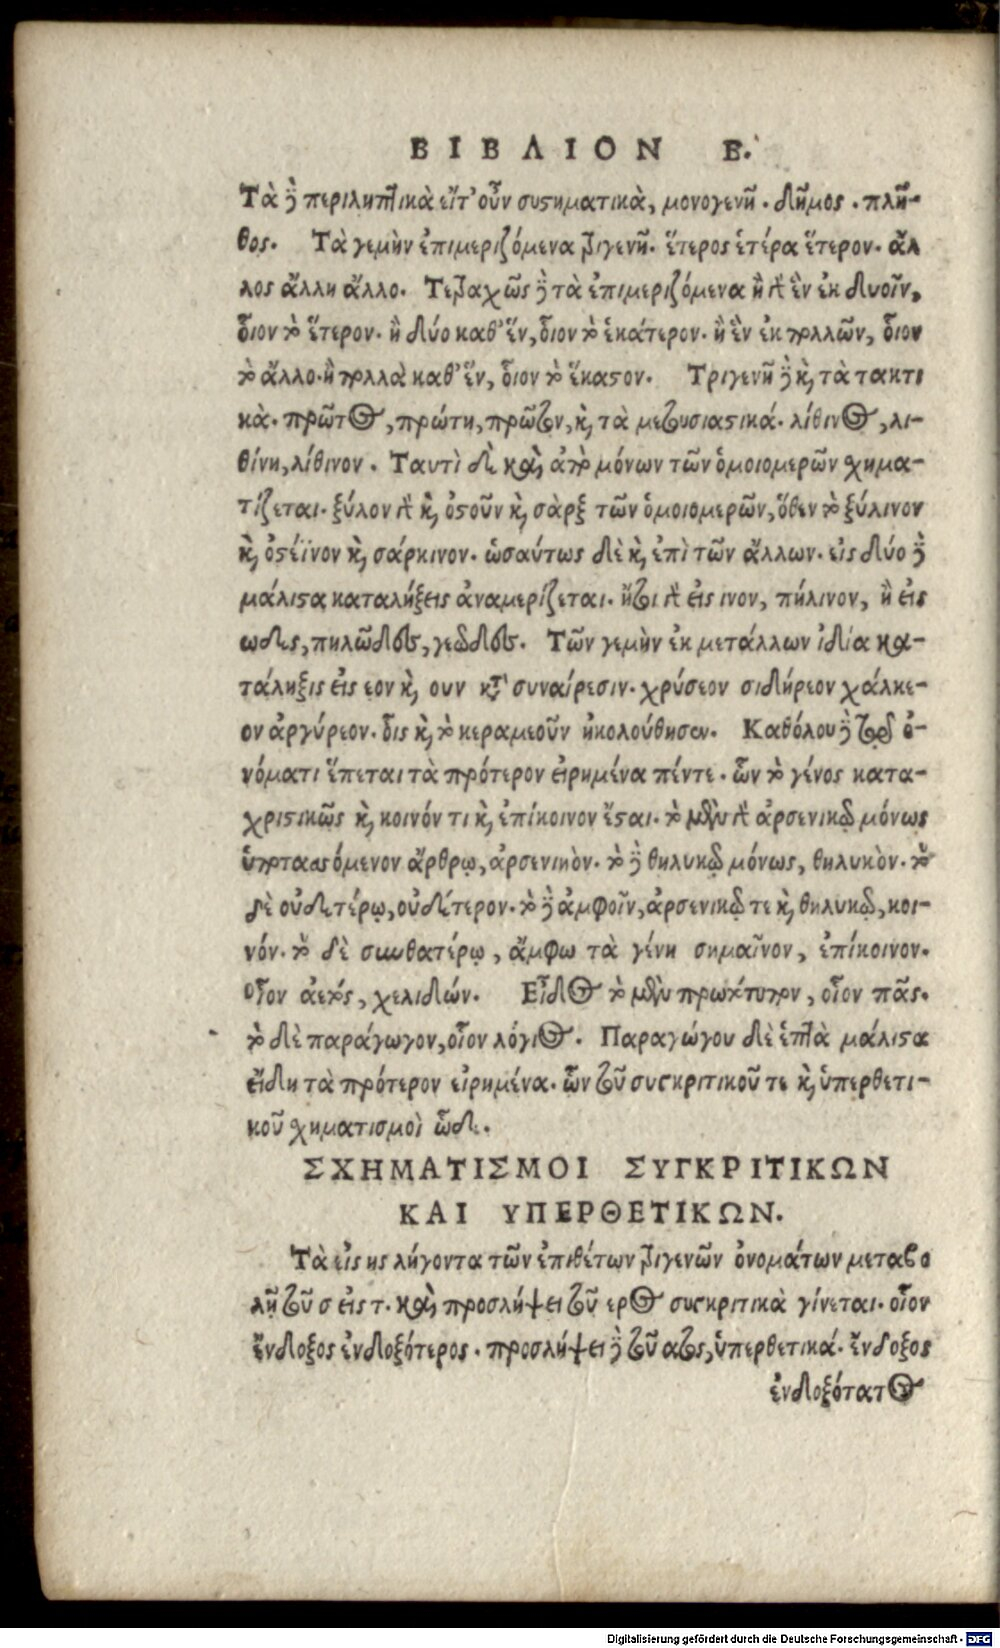 ΒΙΒΛΙΟΝ Ε.
Τὰ δὲ περιληπτικὰ εἴτ' οὖν συστηματικὰ, μονογενῆ. δῆμος. πλῆ-
θος. Τὰ γεμὴν ἐπιμεριζόμενα τριγενῆ. ἕτερος ἑτέρα ἕτερον. ἄλ
λος ἄλλη ἄλλο. Τετραχῶς δὲ τὰ ἐπιμεριζόμενα ἢ γὰρ ἓν ἐκ δυοῖν,
οἷον τὸ ἕτερον. ἢ δύο καθ' ἕν, οἷον τὸ ἑκάτερον. ἢ ἓν ἐκ πολλῶν, οἷον
τὸ ἄλλο. ἢ πολλὰ καθ' ἕν, οἷον τὸ ἕκαστον. Τριγενῆ δὲ καὶ τὰ τακτι
κὰ. πρῶτος, πρώτη, πρῶτον, καὶ τὰ μετουσιαστικά. λίθινος, λι-
θίνη, λίθινον. Ταυτὶ δὲ καὶ ἀπὸ μόνων τῶν ὁμοιομερῶν σχημα-
τίζεται. ξύλον γὰρ καὶ ὀστοῦν καὶ σὰρξ τῶν ὁμοιομερῶν, ὅθεν τὸ ξύλινον
καὶ ὀστέϊνον καὶ σάρκινον. ὡσαύτως δὲ καὶ ἐπὶ τῶν ἄλλων. εἰς δύο δὲ
μάλιστα καταλήξεις ἀναμερίζεται. ἤτοι γὰρ εἰς ινον, πήλινον, ἢ εἰς
ωδες, πηλῶδες, γεῶδες. Τῶν γεμὴν ἐκ μετάλλων ἰδία κα-
τάληξις εἰς εον καὶ ουν κατὰ συναίρεσιν. χρύσεον σιδήρεον χάλκε-
ον ἀργύρεον. οἷς καὶ τὸ κεραμεοῦν ἠκολούθησεν. Καθόλου δὲ τῷ ὀ-
νόματι ἕπεται τὰ πρότερον εἰρημένα πέντε. ὧν τὸ γένος κατα-
χρηστικῶς καὶ κοινόν τι καὶ ἐπίκοινον ἔσται. τὸ μὲν γὰρ ἀρσενικῷ μόνως
ὑποτασσόμενον ἄρθρῳ, ἀρσενικὸν. τὸ δὲ θηλυκῷ μόνως, θηλυκὸν. τὸ
δὲ οὐδετέρῳ, οὐδέτερον. τὸ δὲ ἀμφοῖν, ἀρσενικῷ τε καὶ θηλυκῷ, κοι-
νόν. τὸ δὲ σὺν θατέρῳ, ἄμφω τὰ γένη σημαῖνον, ἐπίκοινον.
οἷον ἀετός, χελιδών. Εἶδος τὸ μὲν πρωτότυπον, οἷον πᾶς.
τὸ δὲ παράγωγον, οἷον λόγιος. Παραγώγου δὲ ἑπτὰ μάλιστα
εἴδη τὰ πρότερον εἰρημένα. ὧν τοῦ συγκριτικοῦ τε καὶ ὑπερθετι-
κοῦ σχηματισμοὶ ὧδε.
ΣΧΗΜΑΤΙΣΜΟΙ ΣΥΓΚΡΙΤΙΚΩΝ
ΚΑΙ ΥΠΕΡΘΕΤΙΚΩΝ.
Τὰ εἰς ης λήγοντα τῶν ἐπιθέτων τριγενῶν ὀνομάτων μεταβο
λῇ τοῦ σ εἰς τ. καὶ προσλήψει τοῦ ερος συγκριτικὰ γίνεται. οἷον
ἔνδοξος ἐνδοξότερος. προσλήψει δὲ τοῦ ατος, ὑπερθετικά. ἔνδοξος
ἐνδοξότατος
Digitalisierung gefördert durch die Deutsche Forschungsgemeinschaft - DFG